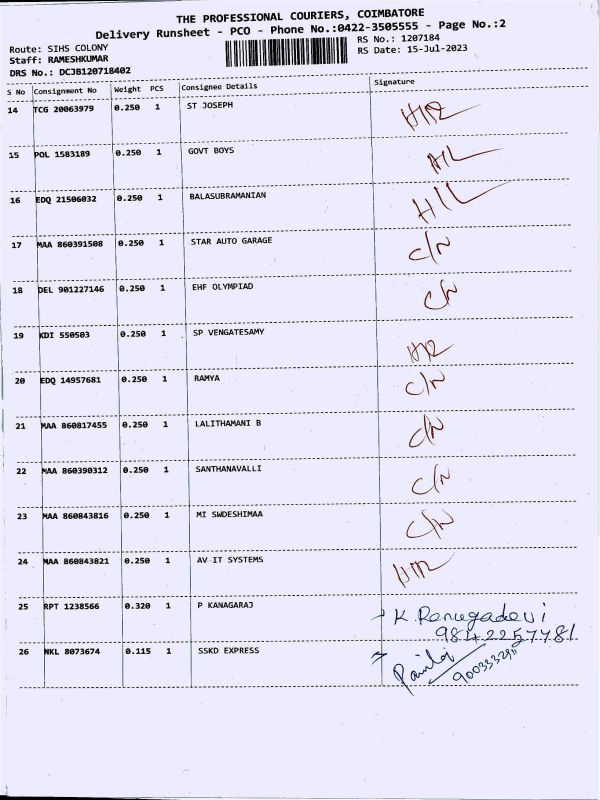 THE PROFESSIONAL COURIERS, COIMBATORE
Delivery Runsheet - PCO - Phone No.:0422-3505555 - Page No.:2
Route: SIHS COLONY
RS No.: 1207184
Staff: RAMESHKUMAR
RS Date: 15-Jul-2023
DRS No.: DCJB120718402
S No Consignment No Weight PCS Consignee Details Signature
14 TCG 20063979 0.250 1 ST JOSEPH
15 POL 1583189 0.250 1 GOVT BOYS
16 EDQ 21506032 0.250 1 BALASUBRAMANIAN
17 MAA 860391508 0.250 1 STAR AUTO GARAGE C/N
18 DEL 901227146 0.250 1 EHF OLYMPIAD C/N
19 KDI 550503 0.250 1 SP VENGATESAMY
20 EDQ 14957681 0.250 1 RAMYA C/N
21 MAA 860817455 0.250 1 LALITHAMANI B C/N
22 MAA 860390312 0.250 1 SANTHANAVALLI C/N
23 MAA 860843816 0.250 1 MI SWDESHIMAA C/N
24 MAA 860843821 0.250 1 AV IT SYSTEMS
25 RPT 1238566 0.320 1 P KANAGARAJ K. Renugadevi
9842257781
26 NKL 8073674 0.115 1 SSKD EXPRESS